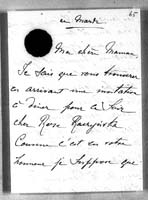 65
en
Ma chère Maman
Je sais que vous trouverez
en arrivant une invitation
à dîner pour ce soir
chez Rose
Comme c'est en votre
honneur je suppose que